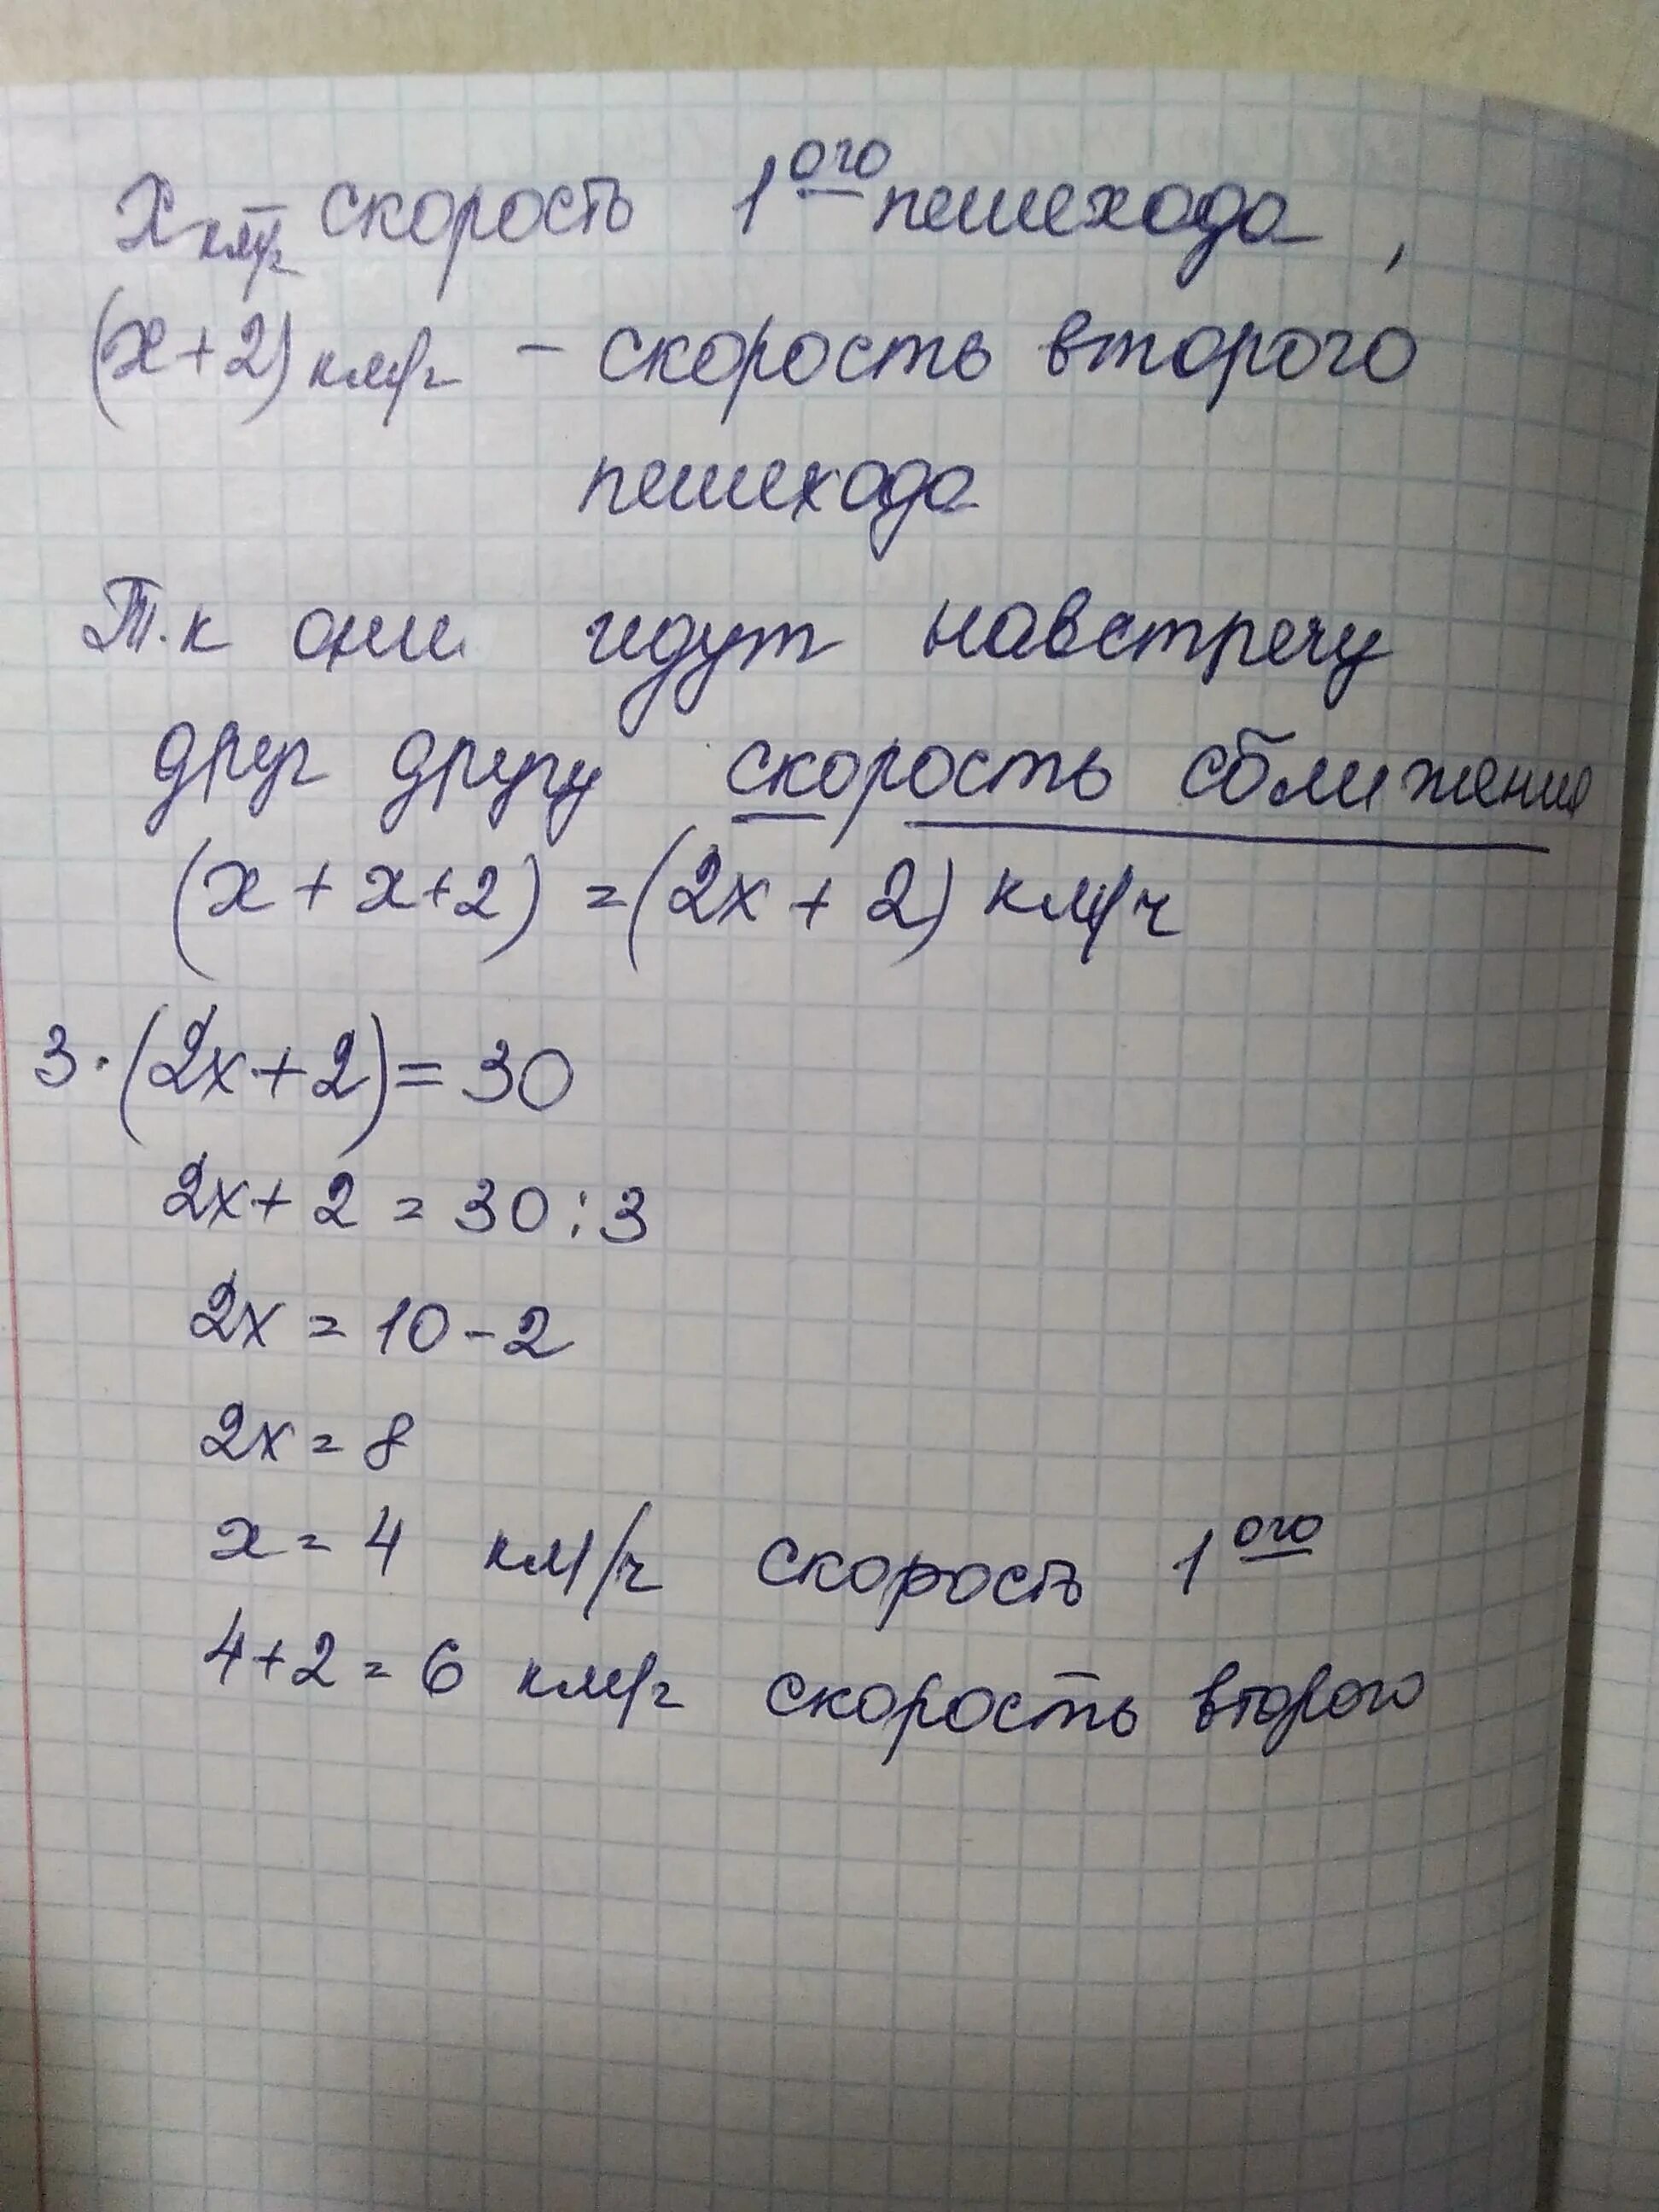 x км/ч – скорость 1ого пешехода,
(x+2) км/ч – скорость второго
пешехода
Т.к они идут навстречу
друг другу скорость сближения
(x + x+2) = (2x + 2) км/ч
3·(2x+2)=30
2x+2 = 30:3
2x = 10-2
2x = 8
x = 4 км/ч скорость 1ого
4+2=6 км/ч скорость второго